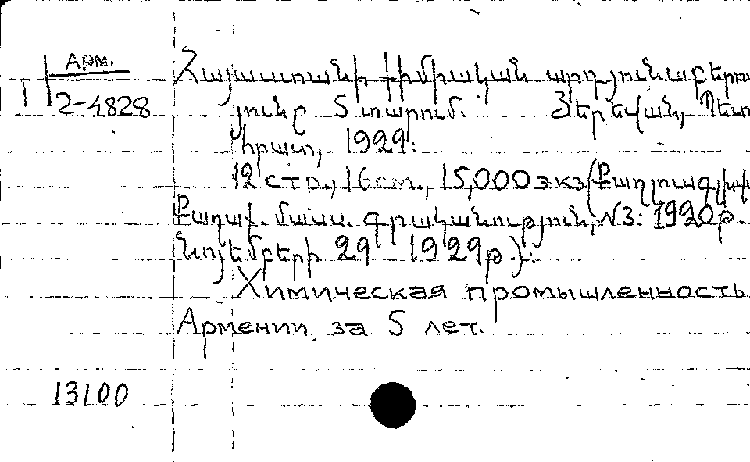 Арм.
1 2-4828
Հայաստանի քիմիական արդյունաբերու
յունը 5 տարում. Յերեվան, Պետ
հրատ, 1929։
12 стр., 16 см., 15,000 экз (Քաղլուսգլխ
Քաղաք. մասս. գրականություն, №3: 1920թ.
նոյեմբերի 29 1929թ.)։
Химическая промышленность
Армении за 5 лет.
13100